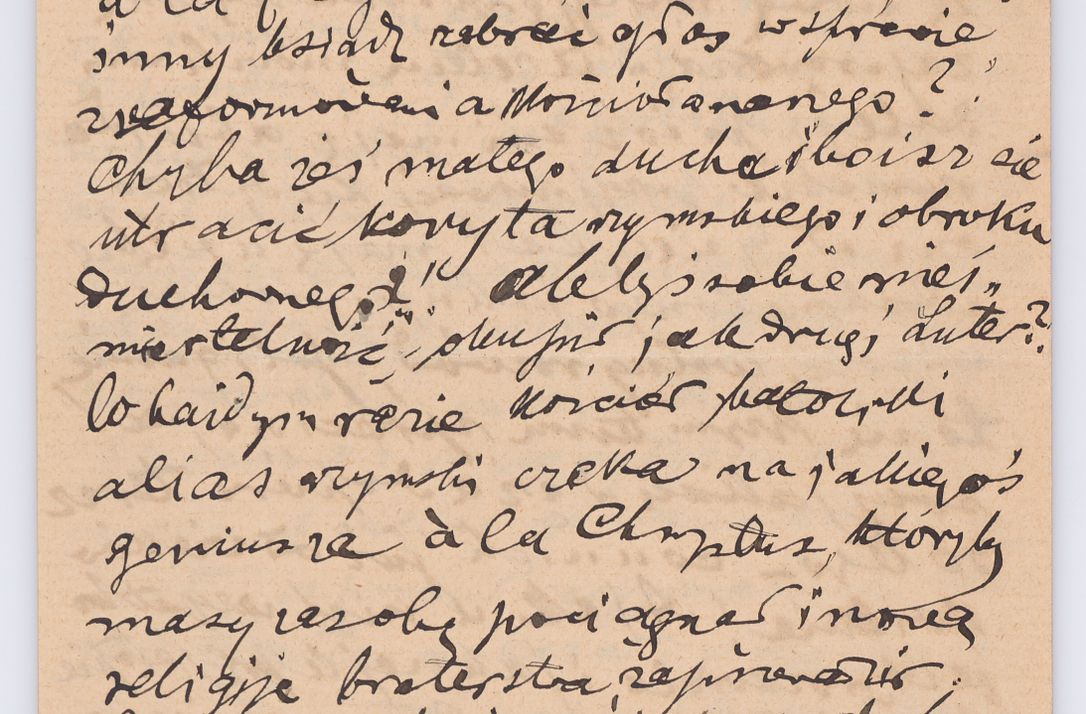 à la
inny ksiądz zebrać głos w sprawie
zreformowania Kościoła naszego?
Chyba żeś małego ducha i boisz się
utracić koryta rzymskiego i obroku
duchownego!" ale byś sobie nieś„
miertelność okupił jak drugi Luter?
W każdym razie Kościół katolicki
alias rzymski czeka na jakiegoś
geniusza à la Chrystus, któryby
masy za sobą pociągnął i nową
religiję braterstwa zaprowadził,